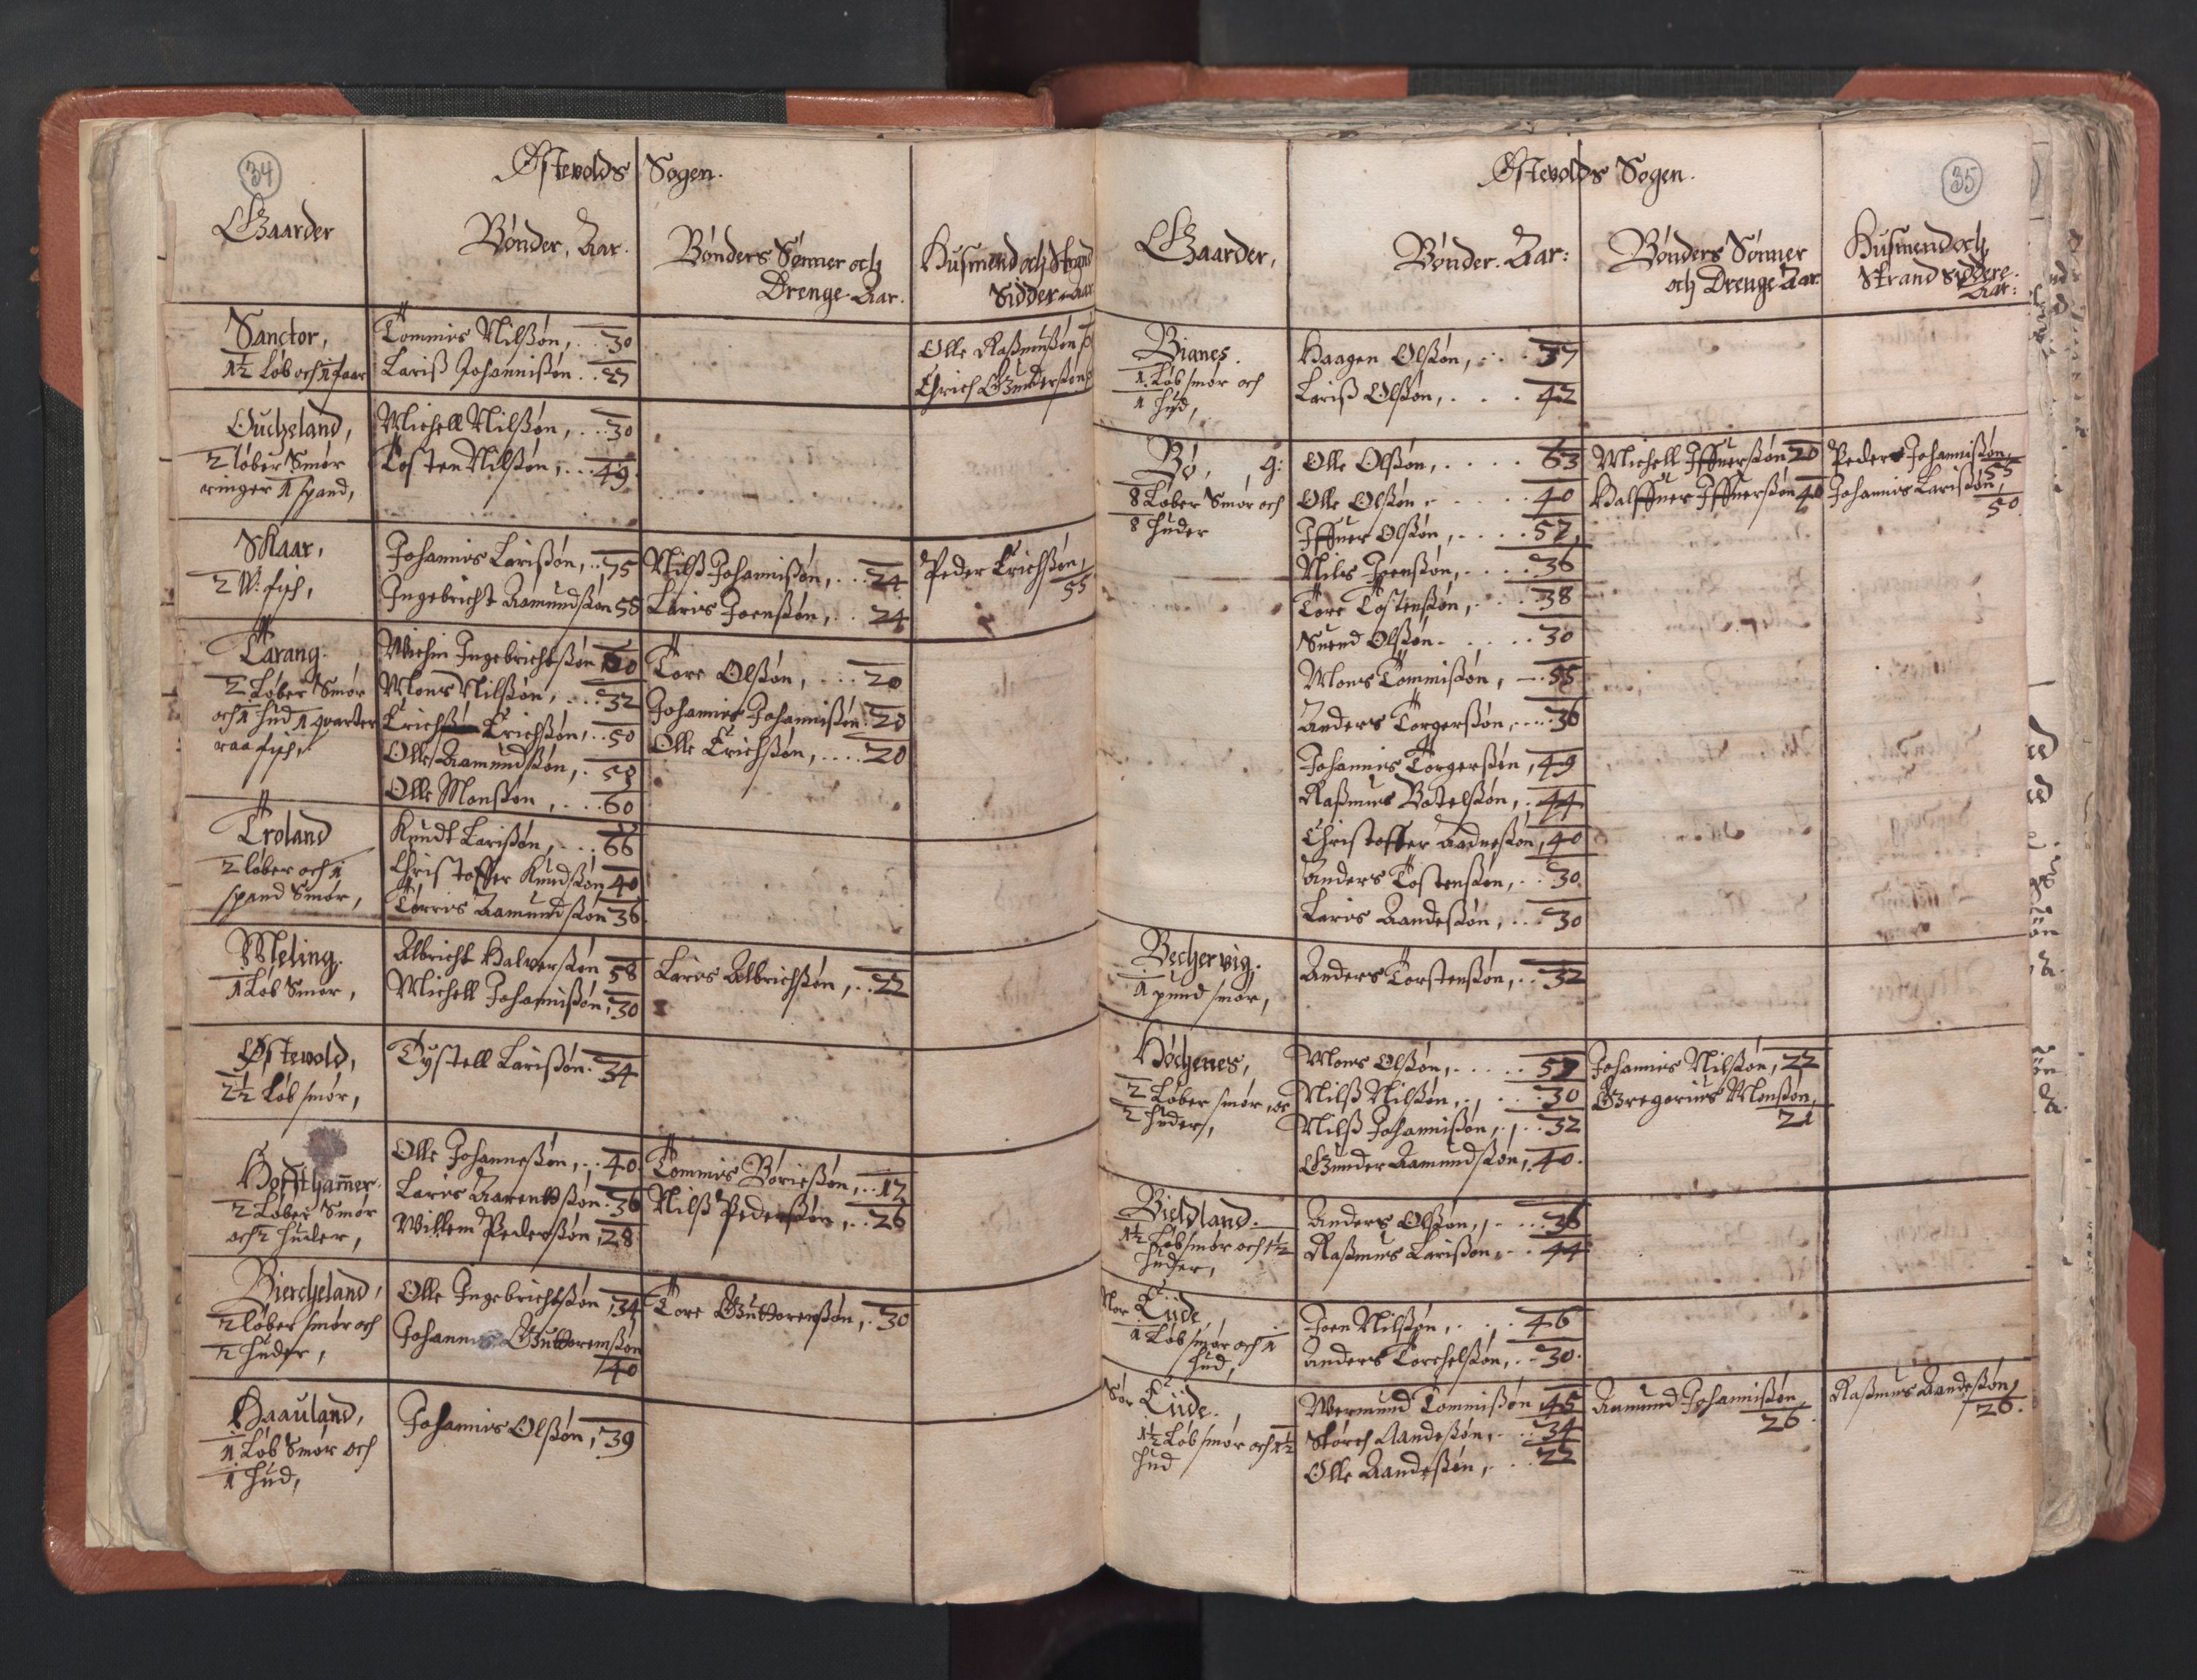 34
Østevolds Sogen.
Gaarder
Bønder, Aar.
Bønders Sønner och
Drenge Aar.
Husmend och Strand
Sidder Aar
Sanctor,
1½ Løb och 1 faar
Tommis Nilßøn, . . 30
Lariß Johannißøn . . 27
Olle Raßmußøn
Erich Gunderßøn
Oucheland,
2 løber Smør
ringer 1 spand,
Michell Nilßøn, . . 30
Tosten Nilßøn, . . . 49
Skaar,
2 W. fisch,
Johannis Larißøn, . . 75
Ingebricht Aamundßøn 58
Nilß Johannißøn, . . 24
Laris Joenßøn, . . 24
Peder Erichßøn,
55
Tarang.
2 Løber Smør
och 1 hud 1 quarter
raa fisch,
Michin Ingebrichtßøn
Mons Nilßøn, . . . 32
Erich Erichßøn, . . 50
Olle Aamundßøn, . 58
Olle Monßøn, . . . 60
Tore Olßøn, . . . 20
Johannis Johannißøn 20
Olle Erichßøn, . . . . 20
Troland
2 løber och 1
spand Smør,
Knudt Larißøn, . . . 66
Christoffer Knudßøn 40
Torris Aamundßøn 36
Meling.
1 Løb Smør,
Albricht Halverßøn 58
Michell Johannißøn, 30
Laris Albrichßøn, . . 22
Østevold,
2½ Løb smør,
Tystell Larißøn . 34
Hoffthamer.
2 Løber Smør
och 2 huder,
Olle Johanneßøn, . . 40
Laris Aarentßøn . 36
Willem Pederßøn, 28
Tommis Børießøn, . . 17
Nilß Pederßøn, . . 26
Biercheland,
2 løber smør och
2 huder,
Olle Ingebrichtßøn, 34
Johannis Guttoremßøn
40
Tore Guttoremßøn, . 30
Haauland,
1 Løb Smør och
1 hud,
Johannis Olßøn, 39
35
Østevolds Sogen.
Gaarder,
Bønder. Aar:
Bønders Sønner
och Drenge Aar
Husmend och
Strand Siddere.
Aar:
Bianes.
1 Løb smør och
1 hud,
Haagen Olßøn, . . . 37
Lariß Olßøn, . . . 42
Bø, g:
8 Løber Smør och
8 huder
Olle Olßøn, . . . . . 63
Olle Olßøn . . . . 40
Iffuer Olßøn, . . . . 57,
Nils Joenßøn, . . . . 36
Tore Tostenßøn, . . . 38
Suend Olßøn . . . . . 30
Mons Tommißøn, . . . 55
Anders Torgerßøn, . . . . 36
Johannis Torgerßøn, 49
Raßmus Botelßøn, . 44
Christoffer Aadneßøn, 40
Anders Tostenßøn, . . 30
Laris Aandeßøn, . . . 30
Michell Iffuerßøn 20
Halffuer Iffuerßøn 40
Peder Johannißøn,
55
Johannis Larißøn,
50
Bechervig.
1 pund smør,
Anders Torstenßøn, . . 32
Høchenes,
2 Løber smør, oc
2 huder,
Mons Olßøn, . . . . . 57
Nilß Nilßøn, . . . 30
Nilß Johannißøn, . . . 32
Gunder Aamundßøn, 40.
Johannis Nilßøn, 22
Gregorius Monßøn,
21
Bieldland.
1½ Løb smør och 1½
huder,
Anders Olßøn, . . . . 36
Raßmus Larißøn, . . 44
Nor Eide
1 Løb smør och 1
hud,
Joen Nilßøn, . . . 46
Anders Torchelßøn, . . 30.
Sør Eide.
1½ Løb smør och 1½
hud
Wermund Tommißøn 45
Størch Aandeßøn, . . 34
Olle Aandeßøn, . . . 22
Aamund Johannißøn,
26
Raßmus Aandeßøn,
26.